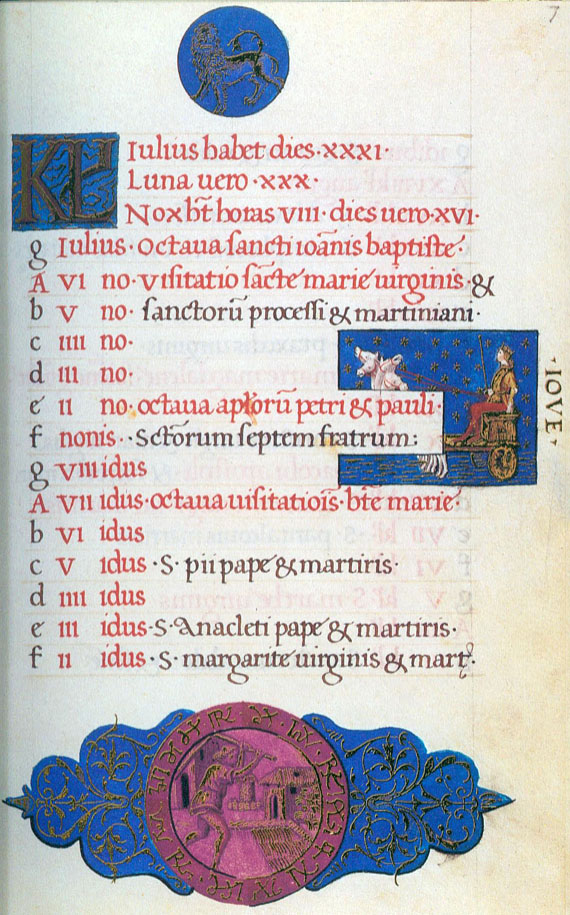 7
KL Iulius habet dies·xxxi·
Luna uero·xxx·
Nox hr̄t horas viii· dies uero·xvi·
g Iulius· Octaua sancti ioānis baptiste·
A vi no· visitatio sācte marie uirginis·&
b v no· sanctorū processi & martiniani·
c iiii no·
d iii no·
e ii no. octaua aptorū petri & pauli·
f nonis·· Sctōrum septem fratrum:
·IOVE·
g viii idus
A vii idus·octaua uisitatiois· btē marie·
b vi idus
c v idus ·S· pii pape & martiris·
d iiii idus
e iii idus·S·Anacleti pape & martiris·
f ii idus·S·margarite uirginis & mart·